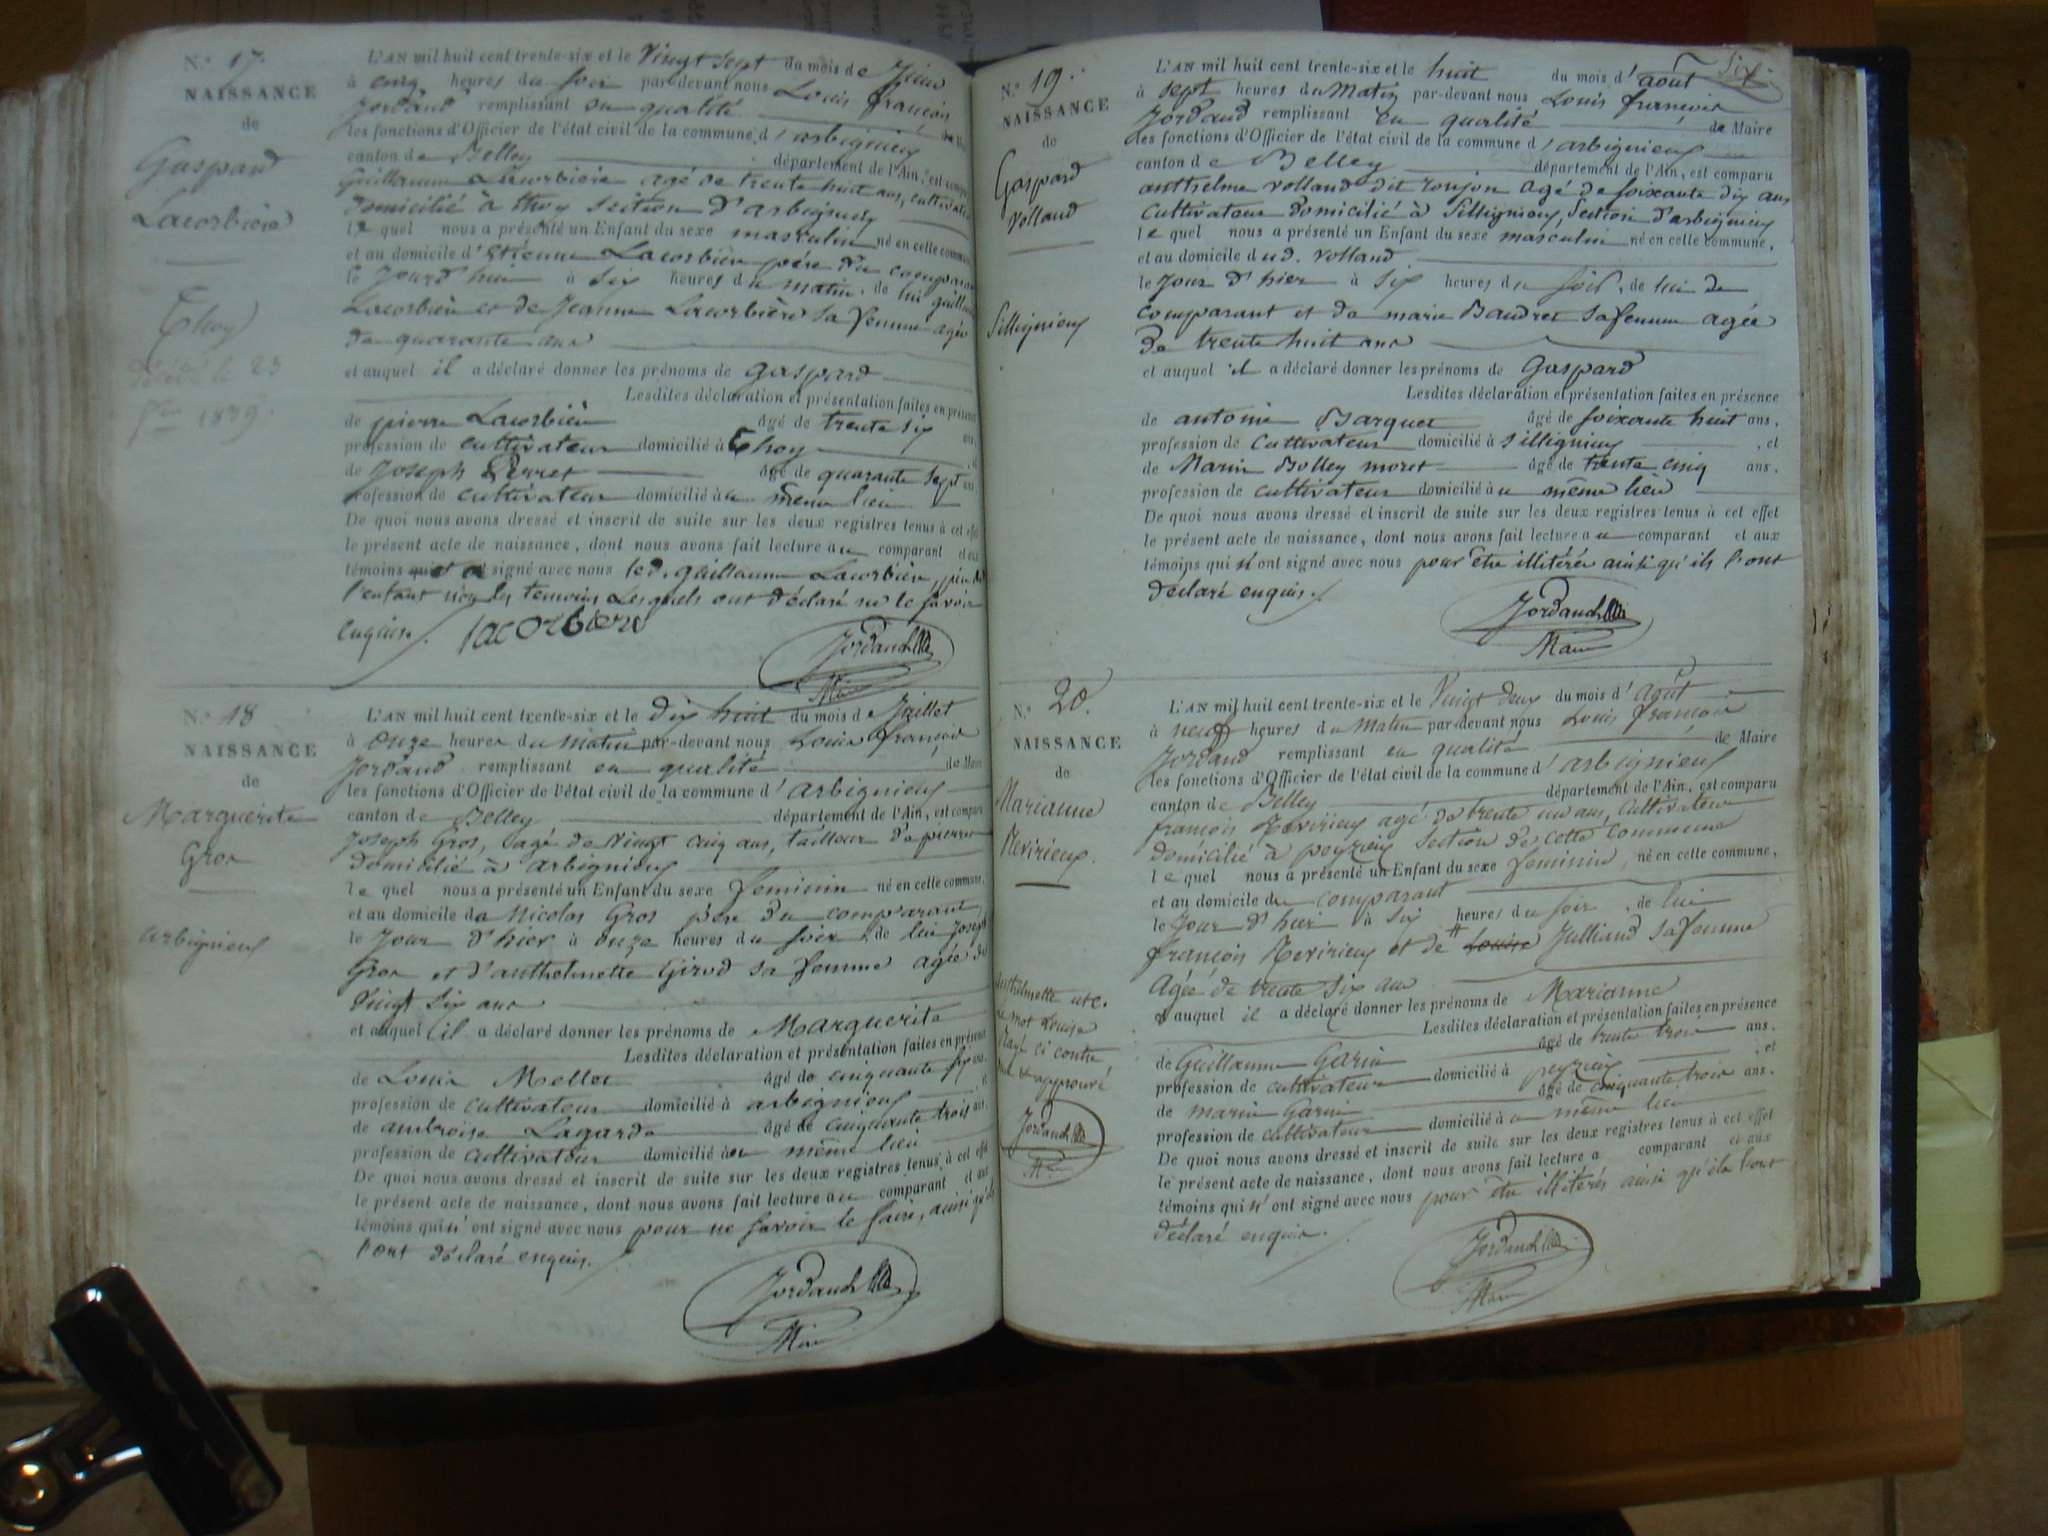 N.° 17.
NAISSANCE
de
Gaspard
Lacorbière
Thoy
23
1839.
L'AN mil huit cent trente-six et le Vingt sept du mois de Juin
à cinq heures du soir par-devant nous Louis françois
Jordand remplissant en qualité de Maire
les fonctions d'Officier de l'état civil de la commune d'arbignieux
canton de Belley département de l'Ain, est comparu
Guillaume Lacorbière agé de trente huit ans, cultivateur
domicilié à thoy section d'arbignieux
le quel nous a présenté un Enfant du sexe masculin né en cette commune
et au domicile d'Etienne Lacorbière père du comparant
le Jour d'hier à six heures du matin, de lui guillaume
Lacorbière et de Jeanne Lacorbière sa femme agée
de quarante ans
et auquel il a déclaré donner les prénoms de gaspard
Lesdites déclaration et présentation faites en présence
de pierre Lacorbière âgé de trente six ans,
profession de cultivateur domicilié à Thoy
de Joseph Perret âgé de quarante sept ans
profession de cultivateur domicilié au même lieu
De quoi nous avons dressé et inscrit de suite sur les deux registres tenus à cet effet
le présent acte de naissance, dont nous avons fait lecture au comparant et aux
témoins et a signé avec nous led. guillaume Lacorbière, père de
l'enfant non les temoins Lesquels ont déclaré ne le savoir
enquis. lacorbiere
Jordand
Maire
N.° 18
NAISSANCE
de
Marguerite
Gros
arbignieux
L'AN mil huit cent trente-six et le Dix huit du mois de Juillet
à onze heures du matin par-devant nous Louis françois
Jordand remplissant en qualité de Maire
les fonctions d'Officier de l'état civil de la commune d'arbignieux
canton de Belley département de l'Ain, est comparu
Joseph Gros, agé de vingt cinq ans, tailleur de pierre
domicilié à arbignieux
le quel nous a présenté un Enfant du sexe feminin né en cette commune,
et au domicile de Nicolas Gros père du comparant
le Jour d'hier à onze heures du soir, de lui Joseph
Gros et d'anthelmette Girod sa femme agée de
vingt six ans
et auquel il a déclaré donner les prénoms de Marguerite
Lesdites déclaration et présentation faites en présence
de Louis Mellet âgé de cinquante six ans,
profession de cultivateur domicilié à arbignieux
de ambroise Lagarde âgé de cinquante trois ans.
profession de cultivateur domicilié au même lieu
De quoi nous avons dressé et inscrit de suite sur les deux registres tenus à cet effet
le présent acte de naissance, dont nous avons fait lecture au comparant et aux
témoins qui n'ont signé avec nous pour ne savoir le faire, ainsi qu'ils
l'ont déclaré enquis.
Jordand
Maire
Six.
N.° 19.
NAISSANCE
de
Gaspard
volland
Sillignieux
L'AN mil huit cent trente-six et le huit du mois d'août
à sept heures du Matin par-devant nous Louis françois
Jordand remplissant en qualité de Maire
les fonctions d'Officier de l'état civil de la commune d'arbignieux
canton de Belley département de l'Ain, est comparu
anthelme volland dit roujon agé de soixante dix ans
cultivateur domicilié à Sillignieux, section d'arbignieux
le quel nous a présenté un Enfant du sexe masculin né en cette commune,
et au domicile dud. volland
le Jour d'hier à six heures du soir, de lui de
comparant et de marie Baudret sa femme agée
de trente huit ans
et auquel il a déclaré donner les prénoms de Gaspard
Lesdites déclaration et présentation faites en présence
de antoine Barquet âgé de soixante huit ans,
profession de cultivateur domicilié à sillignieux, et
de Marin Bolley moret âgé de trente cinq ans,
profession de cultivateur domicilié au même lieu
De quoi nous avons dressé et inscrit de suite sur les deux registres tenus à cet effet
le présent acte de naissance, dont nous avons fait lecture au comparant et aux
témoins qui n'ont signé avec nous pour être illitérés ainsi qu'ils l'ont
déclaré enquis.
Jordand
Maire
N.° 20.
NAISSANCE
de
Marianne
Revirieux.
Anthelmette
le mot Louise
rayé ci contre
approuvé
Jordand
Mre
L'AN mil huit cent trente-six et le Vingt deux du mois d'août
à neuf heures du Matin par-devant nous Louis françois
Jordand remplissant en qualité de Maire
les fonctions d'Officier de l'état civil de la commune d'arbignieux
canton de Belley département de l'Ain, est comparu
françois Revirieux agé de trente un ans, cultivateur
domicilié à peyzieux section de cette commune
le quel nous a présenté un Enfant du sexe feminin, né en cette commune,
et au domicile du comparant
le Jour d'hier à six heures du soir, de lui
françois Revirieux et de Louise Julliand sa femme
Agée de trente six ans
& auquel il a déclaré donner les prénoms de Marianne
Lesdites déclaration et présentation faites en présence
de Guillaume Garin âgé de trente trois ans.
profession de cultivateur domicilié à peyzieux, et
de marin Garin âgé de cinquante trois ans.
profession de cultivateur domicilié au même lieu
De quoi nous avons dressé et inscrit de suite sur les deux registres tenus à cet effet
le présent acte de naissance, dont nous avons fait lecture a comparant et aux
témoins qui n'ont signé avec nous pour être illitérés ainsi qu'ils l'ont
déclaré enquis.
Jordand
Maire